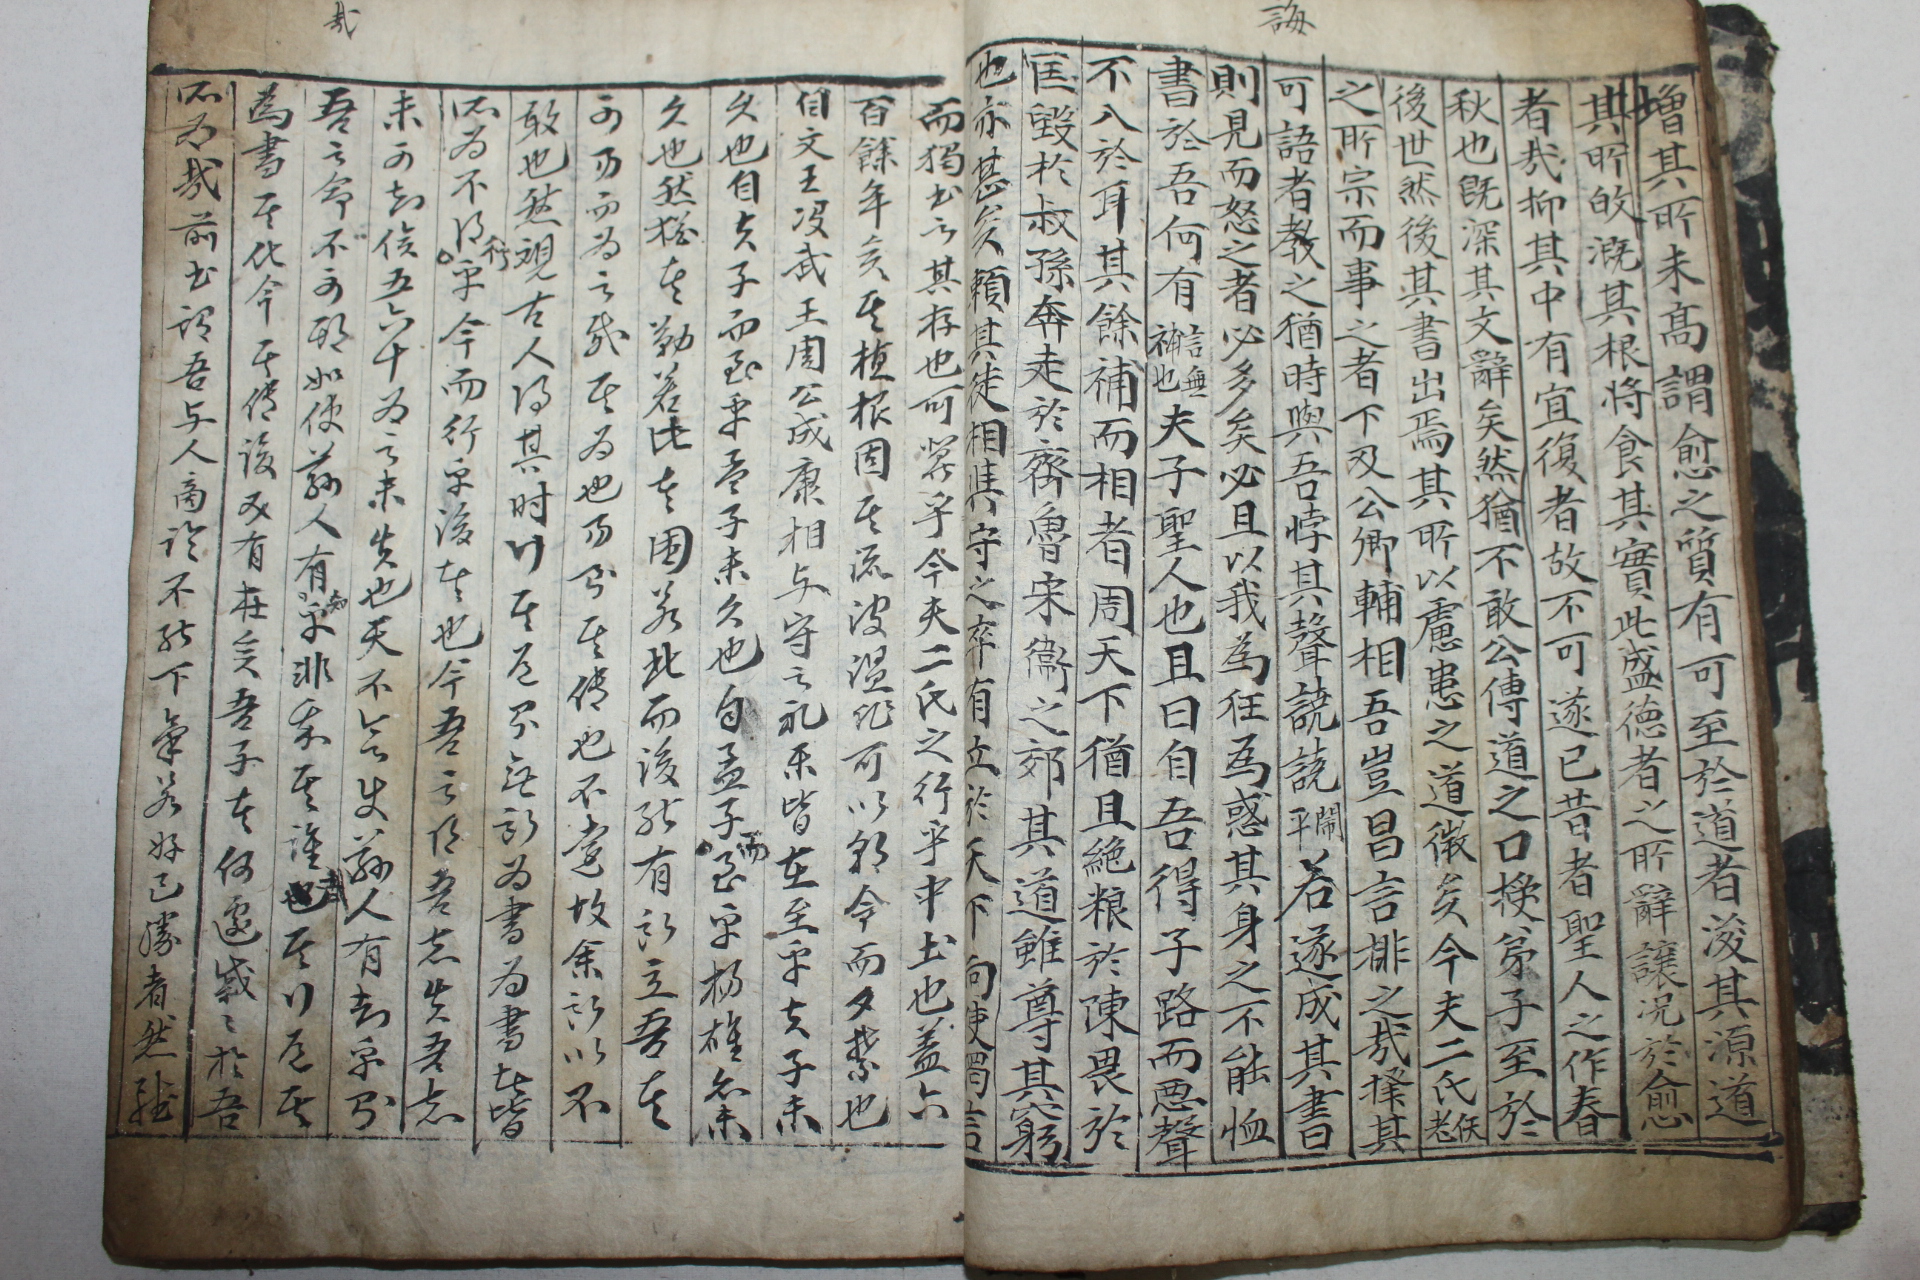 誨
增其所未高謂愈之質有可至於道者浚其源道
其所皈溉其根將食其實此盛德者之所辭讓況於愈
者哉抑其中有宜復者故不可遂已昔者聖人之作春
秋也既深其文辭矣然猶不敢公傳道之口授弟子至於
後世然後其書出焉其所以慮患之道微矣今夫二氏佚老
之所宗而事之者下及公卿輔相吾豈昌言排之哉擇其
可語者教之猶時與吾悖其聲譊譊鬧平若遂成其書
則見而怒之者必多矣必且以我為狂為惑其身之不能恤
書於吾何有言無補也夫子聖人也且曰自吾得子路而惡聲
不入於耳其餘補而相者周天下猶且絶粮於陳畏於
匡毀於叔孫奔走於齊魯宋衞之郊其道雖尊其窮
也亦甚矣賴其徒相與守之卒有立於天下向使獨言
哉
而獨书之其存也可冀乎今夫二氏之行乎中土也盖六
百餘年矣其植根固其流波漫非可以朝令而夕禁也
自文王没武王周公成康相与守之礼乐皆在至乎夫子未
久也自夫子而至乎孟子未久也自孟子而至乎杨雄亦未
久也然猶其勤若此其困若此而後能有所立吾其
可易而為之哉其為也易則其傳也不遠故余所以不
敢也然观古人得其时行其道則無所為書為書者皆
所為不得行乎今而行乎後者也今吾之得吾志失吾志
未可知俟五六十為之未失也天不欲使茲人有知乎則
吾之命不可期如使茲人有知乎非我其誰哉其行道其
為書其化今其傳後必有在矣吾子其何遽戚〻於吾
所為哉前书謂吾与人商論不能下氣若好己勝者然雖